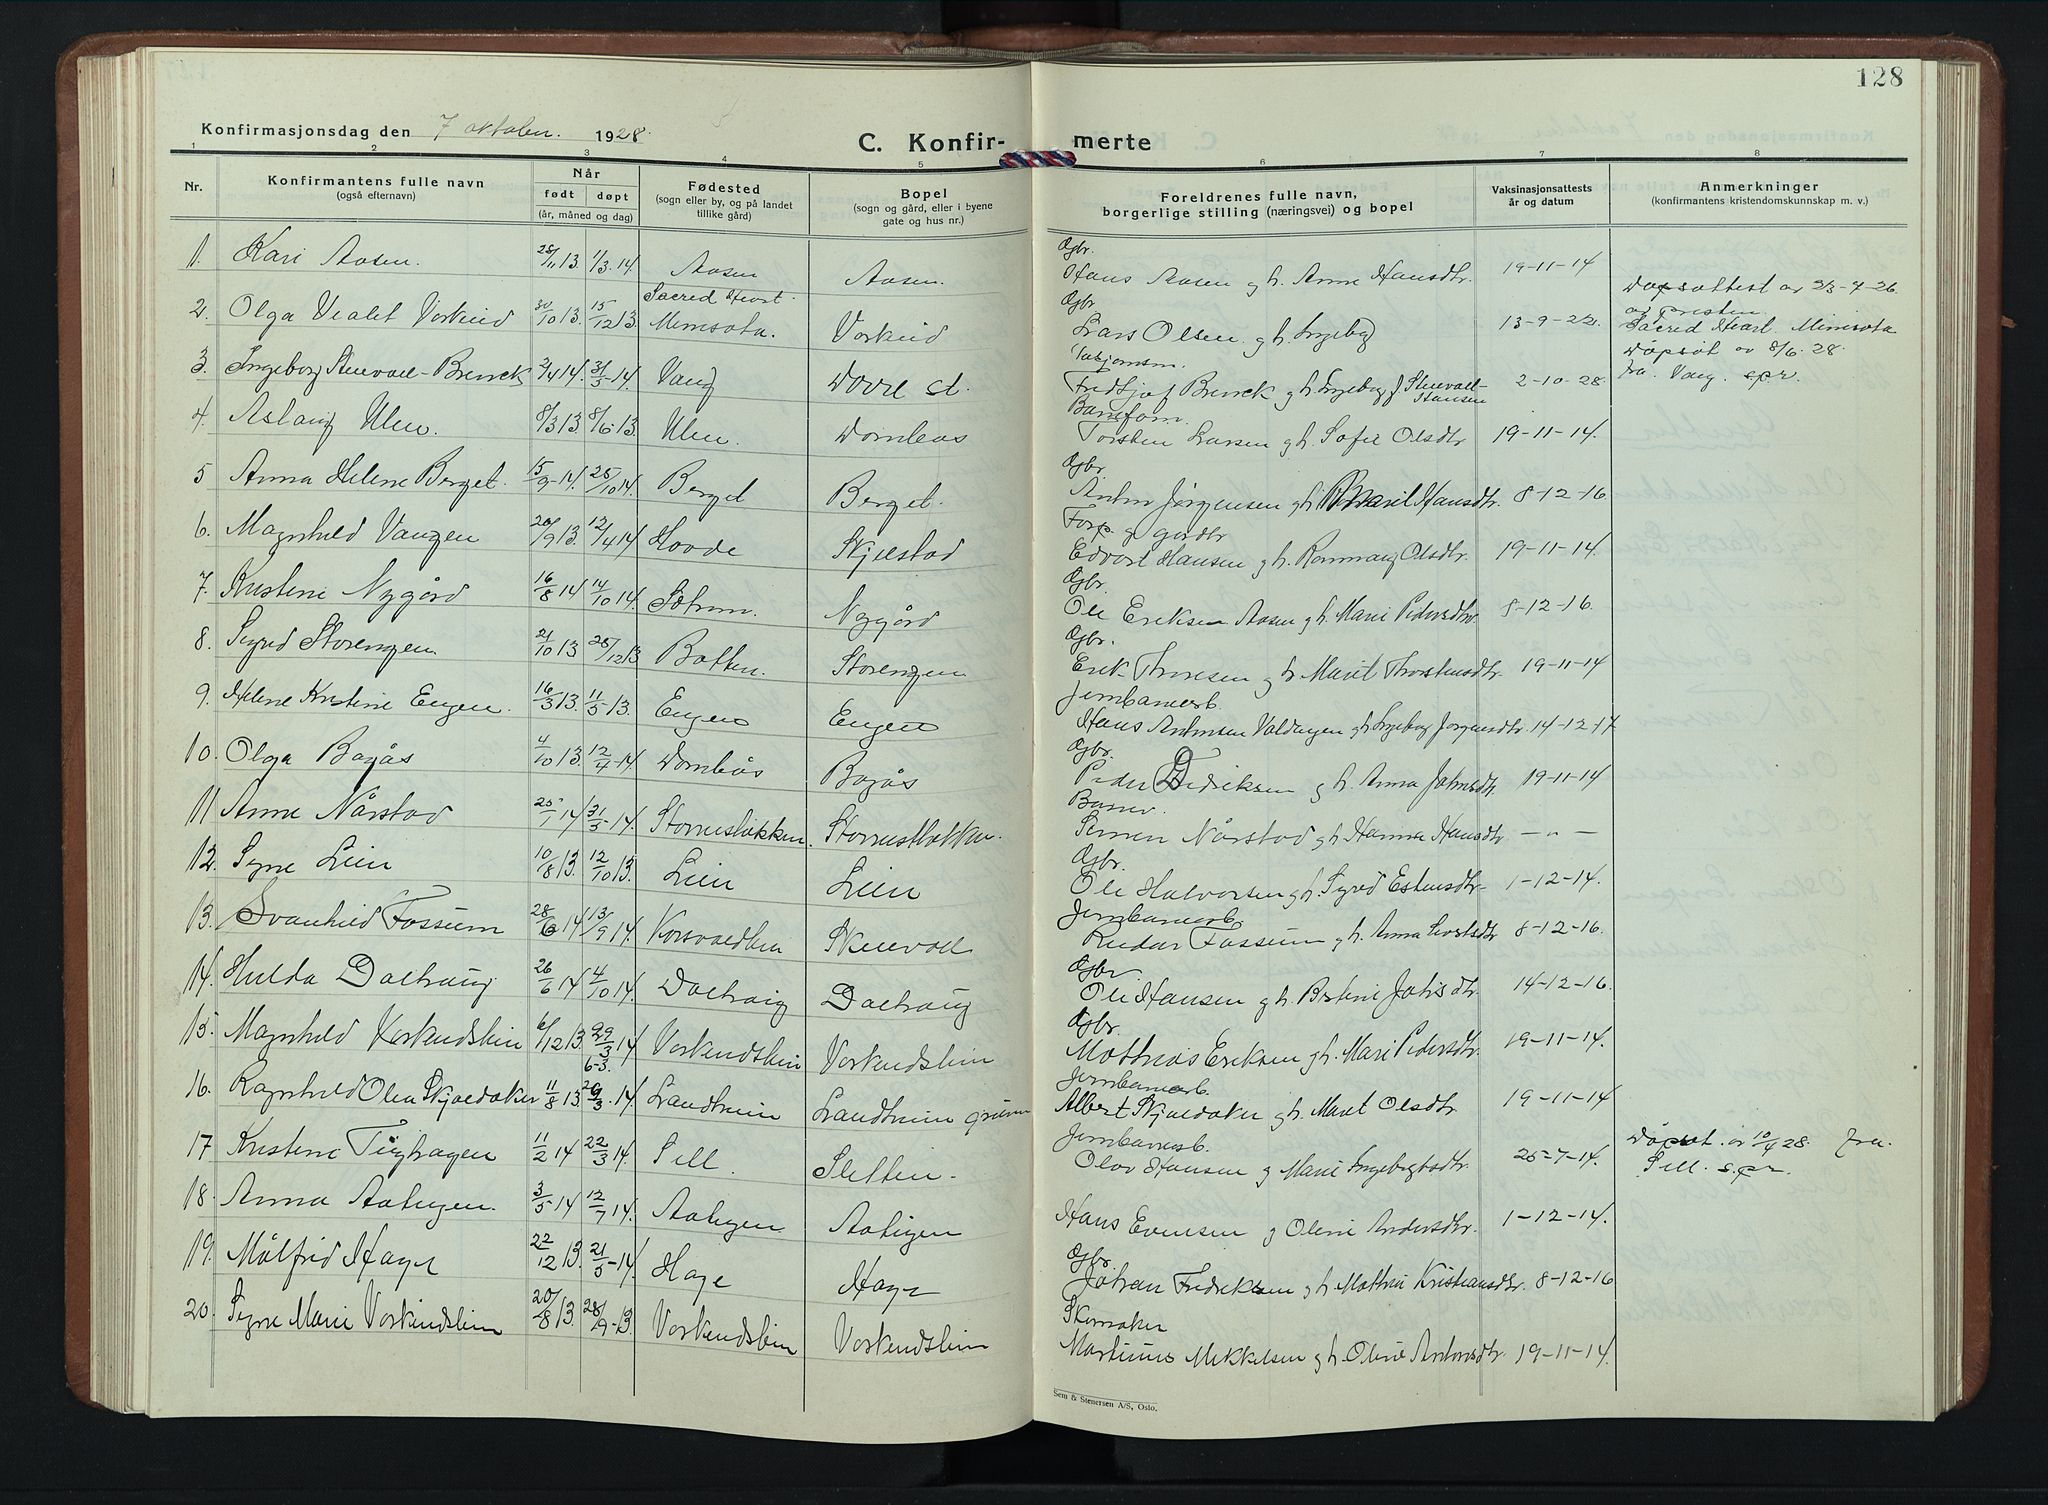 128
Konfirmasjonsdag den 7 oktober. 1928.
C. Konfir- merte
1 2 3 4 5 6 7 8
Nr.
Konfirmantens fulle navn
(også efternavn)
Når
født døpt
(år, måned og dag)
Fødested
(sogn eller by, og på landet
tillike gård)
Bopel
(sogn og gård, eller i byene
gate og hus nr.)
Foreldrenes fulle navn,
borgerlige stilling (næringsvei) og bopel
Vaksinasjonsattests
år og datum
Anmerkninger
(konfirmantens kristendomskunnskap m. v.)
1. Kari Aasen. 28/11 13. 1/3. 14. Aasen Aasen. Gbr. Hans Aasen g h. Anne Hansdtr. 19-11-14
2. Olga Vorkind 30/10 13. 15/12 13. Sacred Heart. Minnsota. Vorkind Gbr. Lars Olsen g h. Ingebog 13-9-22. Dåpsattest av 23-4-26. av presten Sacred Heart. Minnsota
3. Ingeborg Stuevoll-Brenck 3/4 14. 31/5-14. Vang Dovre st. Fridtjof Brenck g h Ingebog J Stuevoll-Hansen 2-10-28. Dåpsat av 8/6. 28. fra. Vang. s.pr.
4. Aslaug Ulen. 8/3 13. 8/6-13. Ulen. Dombås Baneform. Torsten Larsen g h. Sofie Olsdtr 19-11-14.
5 Anna Helene Berget. 15/9-14. 25/10 14. Berget Berget. Gbr Anton Jörgensen g h Marit Hansdtr. 8-12-16.
6. Magnhild Vangen 20/9 13. 12/4 14 Hovde Skjelstad Forp. g gårdbr Edvart Hansen g h. Rønnaug Olsdtr. 19-11-14.
7. Kristine Nygård 16/8 14 14/10 14. Nygård Gbr. Ole Eriksen Aasen g h. Mari Pedersdtr 8-12-16.
8 Sigrid Storengen 21/10 13 28/12 13 Botten. Storengen Gbr. Erik Thoresen g h Marit Thorstensdtr. 19-11-14
9. Helene Kristine Engen. 16/3 13. 11/5 13. Engen Engen Jernbanearb. Hans Antonsen Valdeyen g h Ingebog Jorgensdtr. 14-12-17.
10. Olga Bagås 4/10 13. 12/4-14. Dombås Bagås Gbr. Peder Didriksen g h. Anna Johnsdtr. 19-11-14
11 Anne Nårstad 25/1 14 31/5-14. Storrusløkken. Storrusløkken. Banev. Simen Nårstad g h Hanna Hansdtr. - " -
12. Signe Lien 10/8 13. 12/10 13. Lien Lien Gbr. Ole Halvorsen g h. Sigrid Estensdtr- 1-12-14.
13. Svanhild Fossum 28/6 14 13/9 14. Korsvoldlien Skuevoll Jernbanearb. Reidar Fossum g h. Anna Ivarsdtr 8-12-16.
14. Hulda Dalhaug 26/6 14 4/10 14. Dalhaug Dalhaug Gbr. Ole Hansen g h. 14-12-16.
15. Magnhild Vorkinnslien 6/12 13 29/3 14 6-3. Vorkinnslien Vorkinnslien Gbr. Mathias Eriksen g h. Mari Pedersdtr. 19-11-14.
16. Ragnhild Olea Skjoldaker 11/8 13 29/3. 14. Landheim Landheim Jernbanearb. Albert Skjoldaker g h. Marit Olsdtr 19-11-14
17 Kristine Tåghagen 11/2 14 22/3 14. Sell. Sletten. Jernbanearb. Olav Hansen g Marie 25-7-14. Dåpsat. av 10/4 28. fra. Sell. s.pr.
18. Anna Aatiegen. 3/5 14 12/7 14. Aatiegen Aatiegen Hans Evensen g Oline Andersdtr. 1-12-14.
19. Målfrid Hage 22/12 13. 21/5-14. Hage Hage Gbr. Johan Fredriksen g h Mathea Kristiansdtr. 8-12-16
20. Signe Marie Vorkinnslien 20/8 13. 28/9-13. Vorkinnslien Vorkinnslien Skomaker Martinus Mikkelsen g h. Oline Antonsdtr. 19-11-14.
Sem & Stenersen A/S, Oslo.